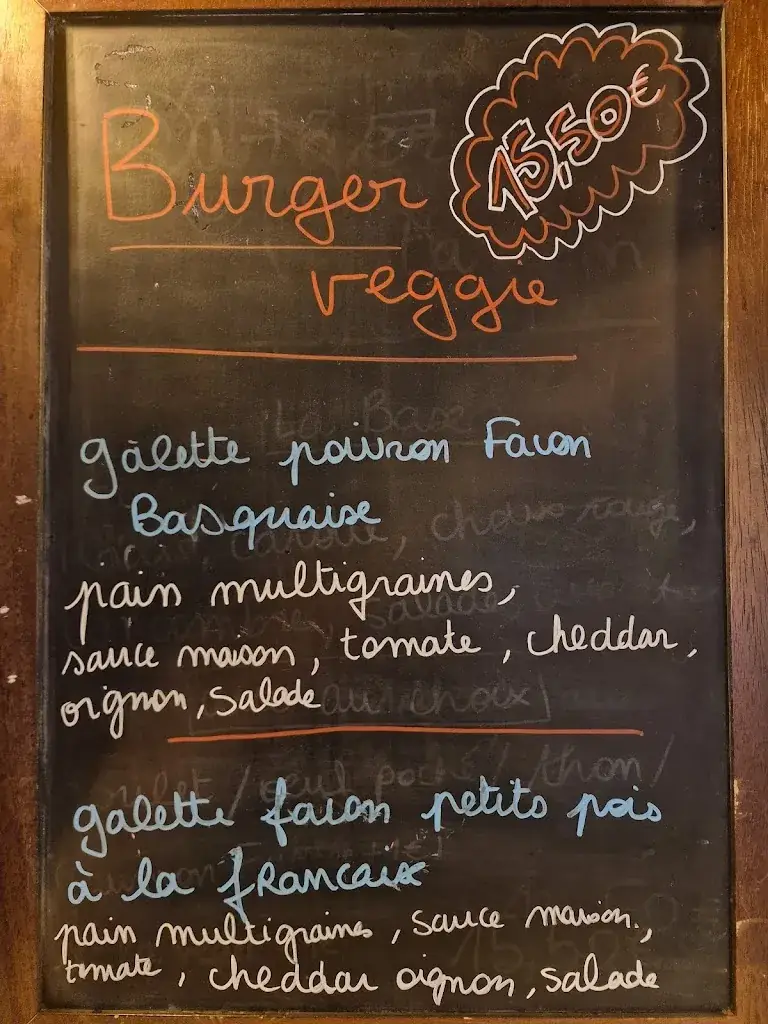 Burger
15,50€
veggie
galette poivron Facon
Basquaise
pain multigraines,
sauce maison, tomate, cheddar,
oignon, salade
galette facon petits pois
à la francaise
pain multigraines, sauce maison,
tomate, cheddar oignon, salade
La Base
choux rouge,
au choix
thon/